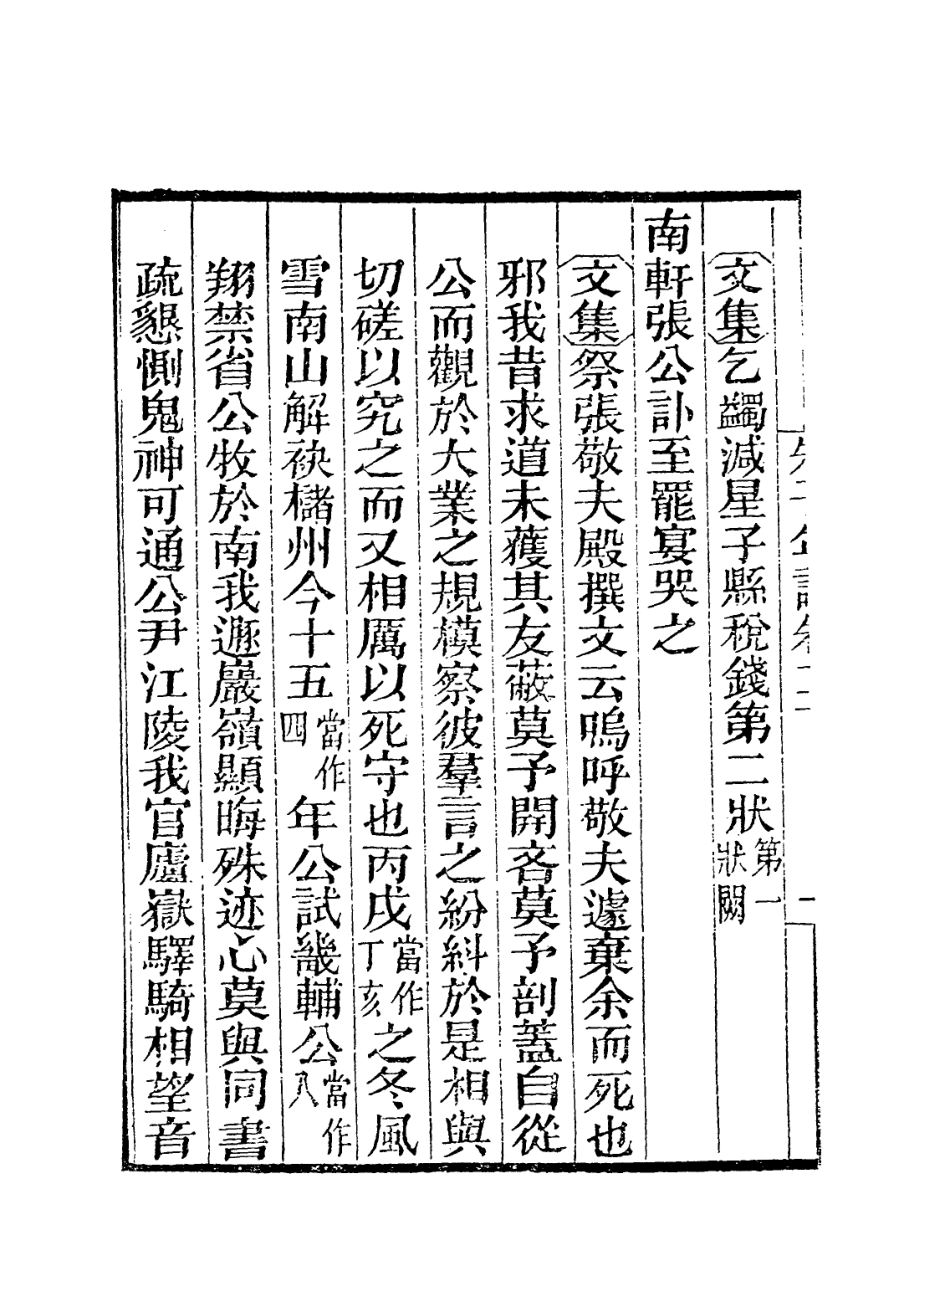 文集乞蠲減星子縣稅錢第二狀第一狀闕
南軒張公訃至罷宴哭之
文集祭張敬夫殿撰文云嗚呼敬夫遽棄余而死也
邪我昔求道未獲其友蔽莫予開吝莫予剖蓋自從
公而觀於大業之規模察彼羣言之紛糾於是相與
切磋以究之而又相厲以死守也丙戌當作丁亥之冬風
雪南山解袂櫧州今十五當作四年公試畿輔公當作八
翔禁省公牧於南我遯巖嶺顯晦殊迹心莫與同書
疏懇惻鬼神可通公尹江陵我官廬嶽驛騎相望音